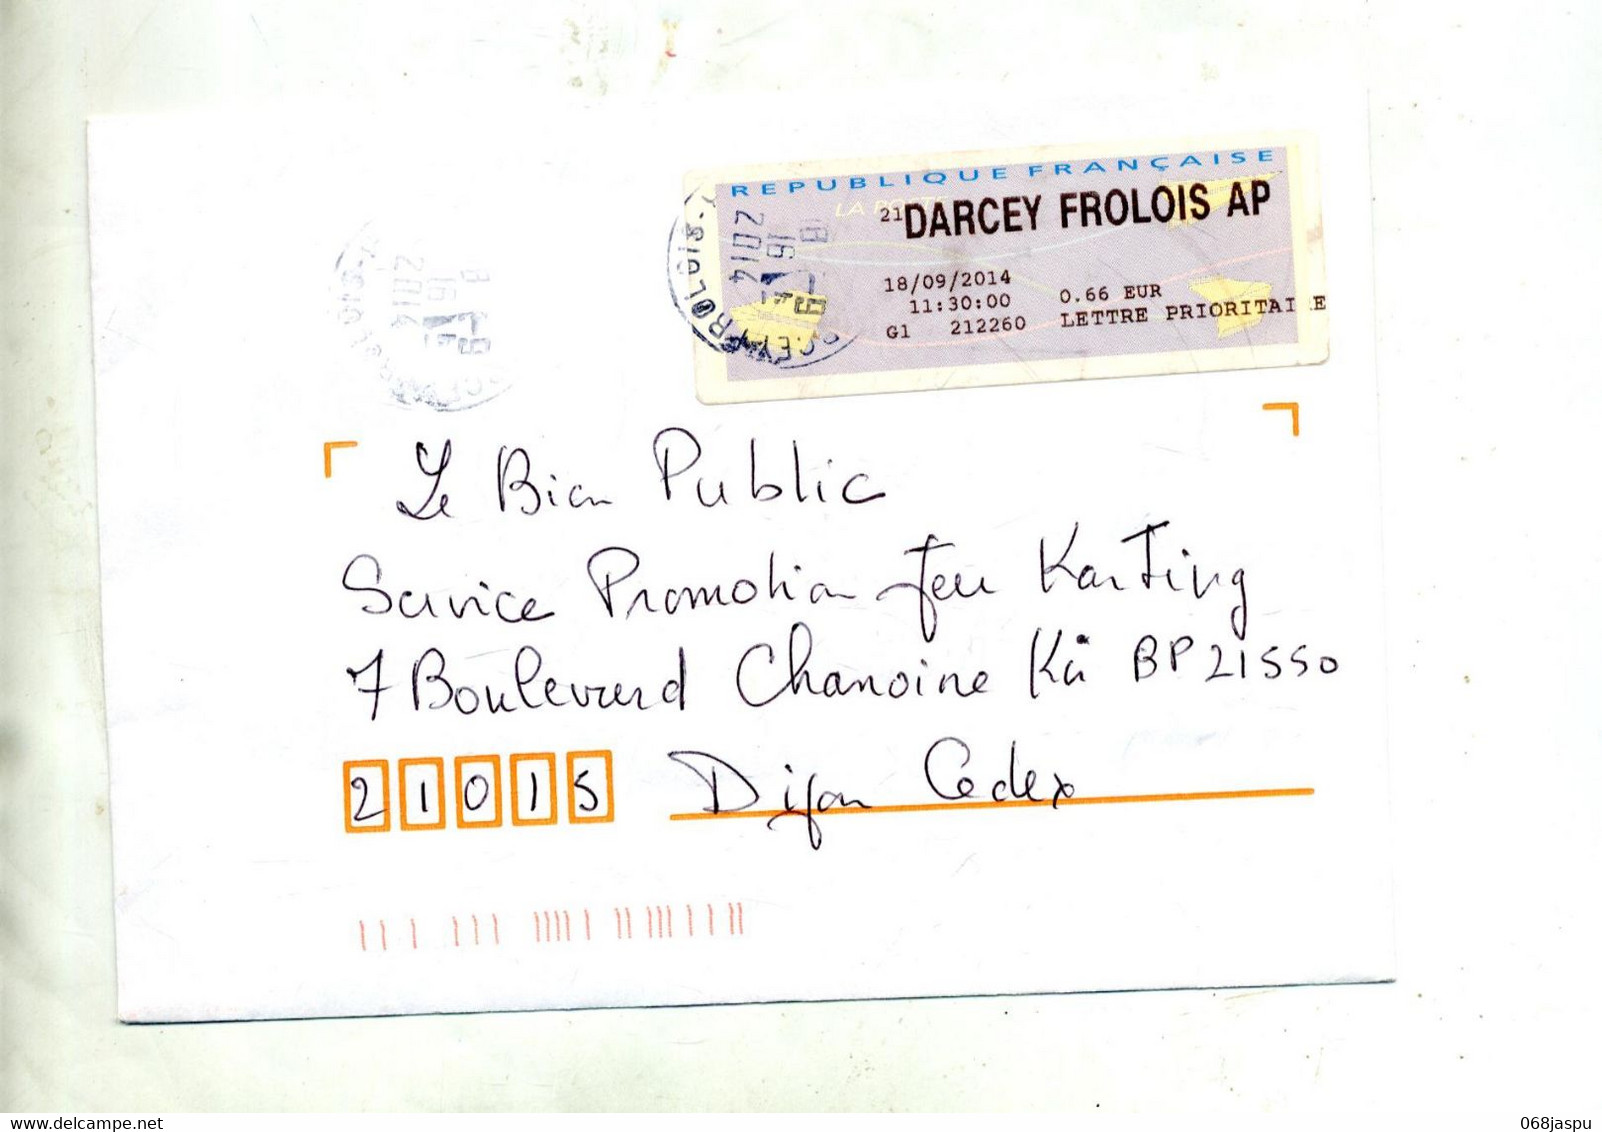 REPUBLIQUE FRANÇAISE
LA POSTE
21 DARCEY FROLOIS AP
18/09/2014
11:30:00 0.66 EUR
G1 212260 LETTRE PRIORITAIRE
2014
16
2014
16
Le Bien Public
Service Promotion Jeu Karting
7 Boulevard Chanoine Kir BP 21550
21015 Dijon Cedex
068jaspu